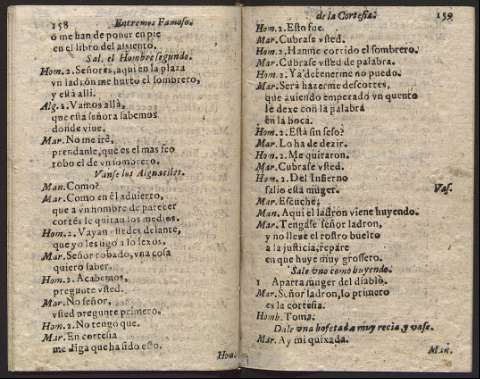 158 Entremes Famoso.
o me han de poner en pie
en el libro del assiento.
Sal. el Hombre segundo.
Hom. 2. Señores, aqui en la plaza
vn ladron me hurtò el sombrero,
y està alli.
Alg. 2. Vamos allà,
que esta señora sabemos
donde viue.
Mar. No me irè,
prendanle, que es el mas feo
robo el de vn sombrero.
Vanse los Alguaciles.
Man. Como?
Mar. Como en èl aduierto,
que a vn hombre de parecer
cortès le quitan los medios.
Hom. 2. Vayan vstedes delante,
que yo les sigo a lo lexos.
Mar. Señor robado, vna cosa
quiero saber.
Hom. 2. Acabemos,
pregunte vsted.
Mar. No señor,
vsted pregunte primero.
Hom. 2. No tengo que.
Mar. En cortesia
me diga que ha sido esto.
Hom.
de la Cortesia. 159
Hom. 2. Esto fue.
Mar. Cubrase vsted.
Hom. 2. Hanme corrido el sombrero.
Mar. Cubrase vsted de palabra.
Hom. 2. Ya detenerme no puedo.
Mar. Serà hazerme descortes,
que auiendo empezado vn quento
le dexe con la palabra
en la boca.
Hom. 2. Està sin seso?
Mar. Lo ha de dezir.
Hom. 2. Me quitaron.
Mar. Cubrase vsted.
Hom. 2. Del Infierno
saliò esta muger. Vas.
Mar. Escuchè;
Man. Aqui el ladron viene huyendo.
Mar. Tengase señor ladron,
y no lleue el rostro buelto
a la justicia, repare
en que huye muy grossero.
Sale vno como huyendo.
1 Aparta muger del diablo.
Mar. Señor ladron, lo primero
es la cortesia.
Homb. Toma.
Dale vna bofetada muy recia, y vase.
Mar. Ay mi quixada.
Man.